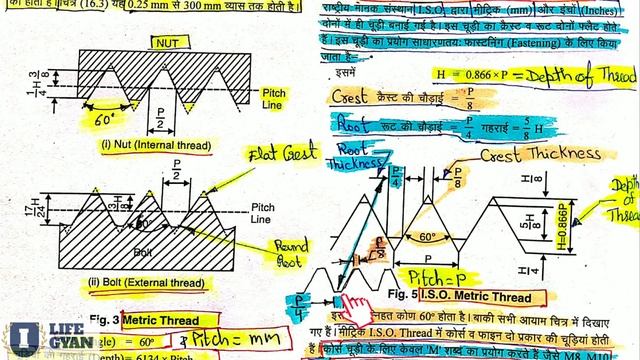 चित्र (16.3) यह 0.25 mm से 300 mm व्यास तक होती है।
NUT
3/8 H
1/4 H
60°
P/2
Pitch Line
(i) Nut (Internal thread)
Flat Crest
P/2
17/24 H
60°
Pitch Line
Round Root
Bolt
(ii) Bolt (External thread)
Fig. 3 Metric Thread
= 60°
Pitch = mm
LIFE GYAN
राष्ट्रीय मानक संस्थान I.S.O. द्वारा मीट्रिक (mm) और इंचों (Inches)
दोनों में ही चूड़ी बनाई गई है। इस चूड़ी का क्रैस्ट व रूट दोनों फ्लैट होते
हैं। इस चूड़ी का प्रयोग साधारणतयः फास्टनिंग (Fastening) के लिए किया
जाता है—
इसमें
H = 0.866 × P = Depth of Thread
Crest क्रैस्ट की चौड़ाई = P/8
Root रूट की चौड़ाई = P/4 गहराई = 5/8 H
Root Thickness
P/4
P/8
Crest Thickness
H/8
5/8 H
H=0.866P
H/4
Depth of Thread
60°
P
P/8
Pitch = P
P/4
Fig. 5 I.S.O. Metric Thread
कोण 60° होता है। बाकी सभी आयाम चित्र में दिखाए
गए हैं। मीट्रिक I.S.O. Thread में कोर्स व फाइन दो प्रकार की चूड़ियां होती
हैं। कोर्स चूड़ी के लिए केवल 'M' शब्द का प्रयोग करते हैं जैसे M8, M10